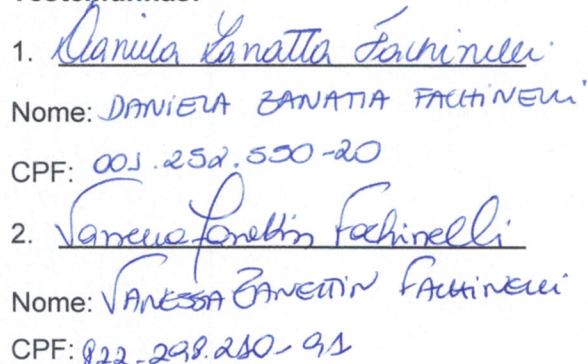 Testemunhas:
1. Daniela Zanatta Fachinelli
Nome: DANIELA ZANATTA FACHINELLI
CPF: 001.252.550-20
2. Vanessa Zanettin Fachinelli
Nome: VANESSA ZANETTIN FACHINELLI
CPF: 822.298.210-91